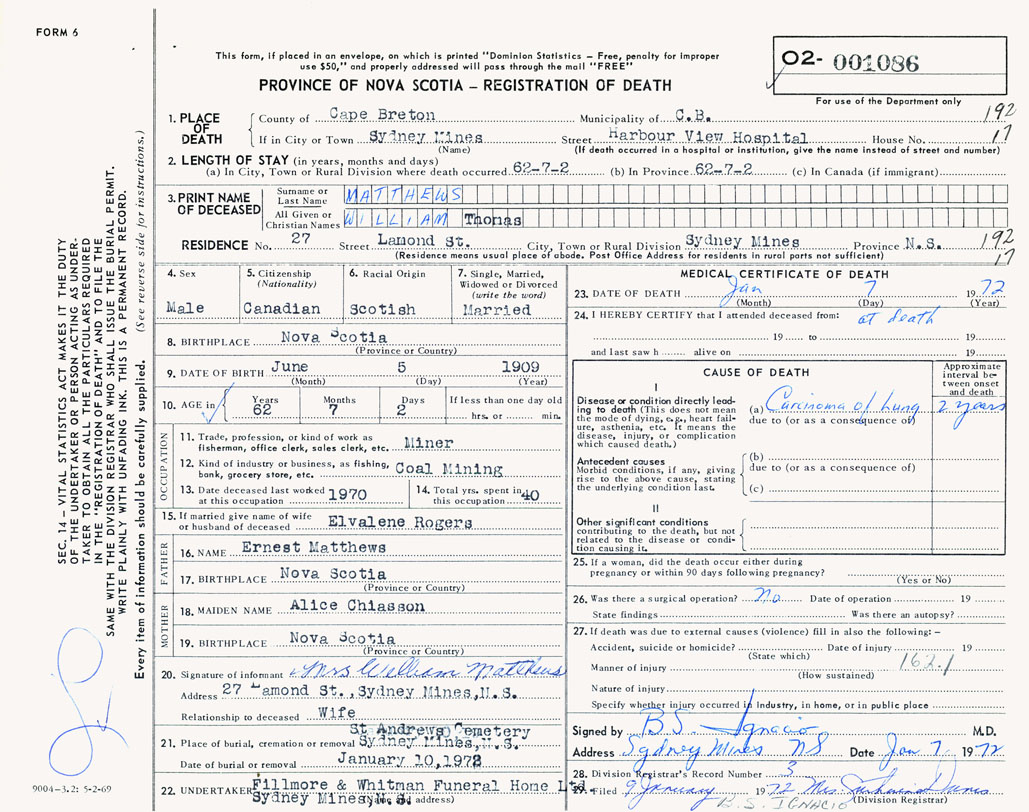 FORM 6
This form, if placed in an envelope, on which is printed "Dominion Statistics – Free, penalty for improper
use $50," and properly addressed will pass through the mail "FREE"
PROVINCE OF NOVA SCOTIA – REGISTRATION OF DEATH
02- 001086
For use of the Department only
SEC. 14 – VITAL STATISTICS ACT MAKES IT THE DUTY
OF THE UNDERTAKER OR PERSON ACTING AS UNDER-
TAKER TO OBTAIN ALL THE PARTICULARS REQUIRED
IN THE "REGISTRATION OF DEATH" AND TO FILE THE
SAME WITH THE DIVISION REGISTRAR WHO SHALL ISSUE THE BURIAL PERMIT.
WRITE PLAINLY WITH UNFADING INK. THIS IS A PERMANENT RECORD.
Every item of information should be carefully supplied. (See reverse side for instructions.)
1. PLACE OF DEATH
County of Cape Breton Municipality of C.B. 192
If in City or Town Sydney Mines Street Harbour View Hospital House No. 17
(Name) (If death occurred in a hospital or institution, give the name instead of street and number)
2. LENGTH OF STAY (in years, months and days)
(a) In City, Town or Rural Division where death occurred 62-7-2 (b) In Province 62-7-2 (c) In Canada (if immigrant)
3. PRINT NAME OF DECEASED
Surname or Last Name MATTHEWS
All Given or Christian Names WILLIAM Thomas
RESIDENCE No. 27 Street Lamond St. City, Town or Rural Division Sydney Mines Province N.S. 192
(Residence means usual place of abode. Post Office Address for residents in rural parts not sufficient) 17
4. Sex
Male
5. Citizenship
(Nationality)
Canadian
6. Racial Origin
Scotish
7. Single, Married,
Widowed or Divorced
(write the word)
Married
8. BIRTHPLACE Nova Scotia
(Province or Country)
9. DATE OF BIRTH June 5 1909
(Month) (Day) (Year)
10. AGE in
Years Months Days If less than one day old
62 7 2 hrs. or min.
OCCUPATION
11. Trade, profession, or kind of work as
fishermen, office clerk, sales clerk, etc. Miner
12. Kind of industry or business, as fishing,
bank, grocery store, etc. Coal Mining
13. Date deceased last worked
at this occupation 1970
14. Total yrs. spent in
this occupation 40
15. If married give name of wife
or husband of deceased Elvalene Rogers
FATHER
16. NAME Ernest Matthews
17. BIRTHPLACE Nova Scotia
(Province or Country)
MOTHER
18. MAIDEN NAME Alice Chiasson
19. BIRTHPLACE Nova Scotia
(Province or Country)
20. Signature of informant Mrs William Matthews
Address 27 Lamond St., Sydney Mines, N.S.
Relationship to deceased Wife
St Andrews Cemetery
21. Place of burial, cremation or removal Sydney Mines, .S.
Date of burial or removal January 10, 1972
22. UNDERTAKER Fillmore & Whitman Funeral Home Ltd
Sydney Mines N.S.
(Name and address)
9004-3.2: 5-2-69
MEDICAL CERTIFICATE OF DEATH
23. DATE OF DEATH Jan 7 1972
(Month) (Day) (Year)
24. I HEREBY CERTIFY that I attended deceased from: at death
19 to 19
and last saw h alive on 19
CAUSE OF DEATH
Approximate
interval be-
tween onset
and death
I
Disease or condition directly lead-
ing to death (This does not mean
the mode of dying, e.g., heart fail-
ure, asthenia, etc. It means the
disease, injury, or complication
which caused death.)
(a) Carcinoma of Lung 2 years
due to (or as a consequence of)
Antecedent causes
Morbid conditions, if any, giving
rise to the above cause, stating
the underlying condition last.
(b)
due to (or as a consequence of)
(c)
II
Other significant conditions
contributing to the death, but not
related to the disease or condi-
tion causing it.
25. If a woman, did the death occur either during
pregnancy or within 90 days following pregnancy?
(Yes or No)
26. Was there a surgical operation? No Date of operation 19
State findings Was there an autopsy?
27. If death was due to external causes (violence) fill in also the following: –
Accident, suicide or homicide? Date of injury 19
(State which) 162.1
Manner of injury
(How sustained)
Nature of injury
Specify whether injury occurred in Industry, in home, or in public place
Signed by B.S. Ignacio M.D.
Address Sydney Mines NS Date Jan 7 1972
28. Division Registrar's Record Number 3
29. Filed 9 January 1972 Mrs.
(Division Registrar)
B.S. IGNACIO